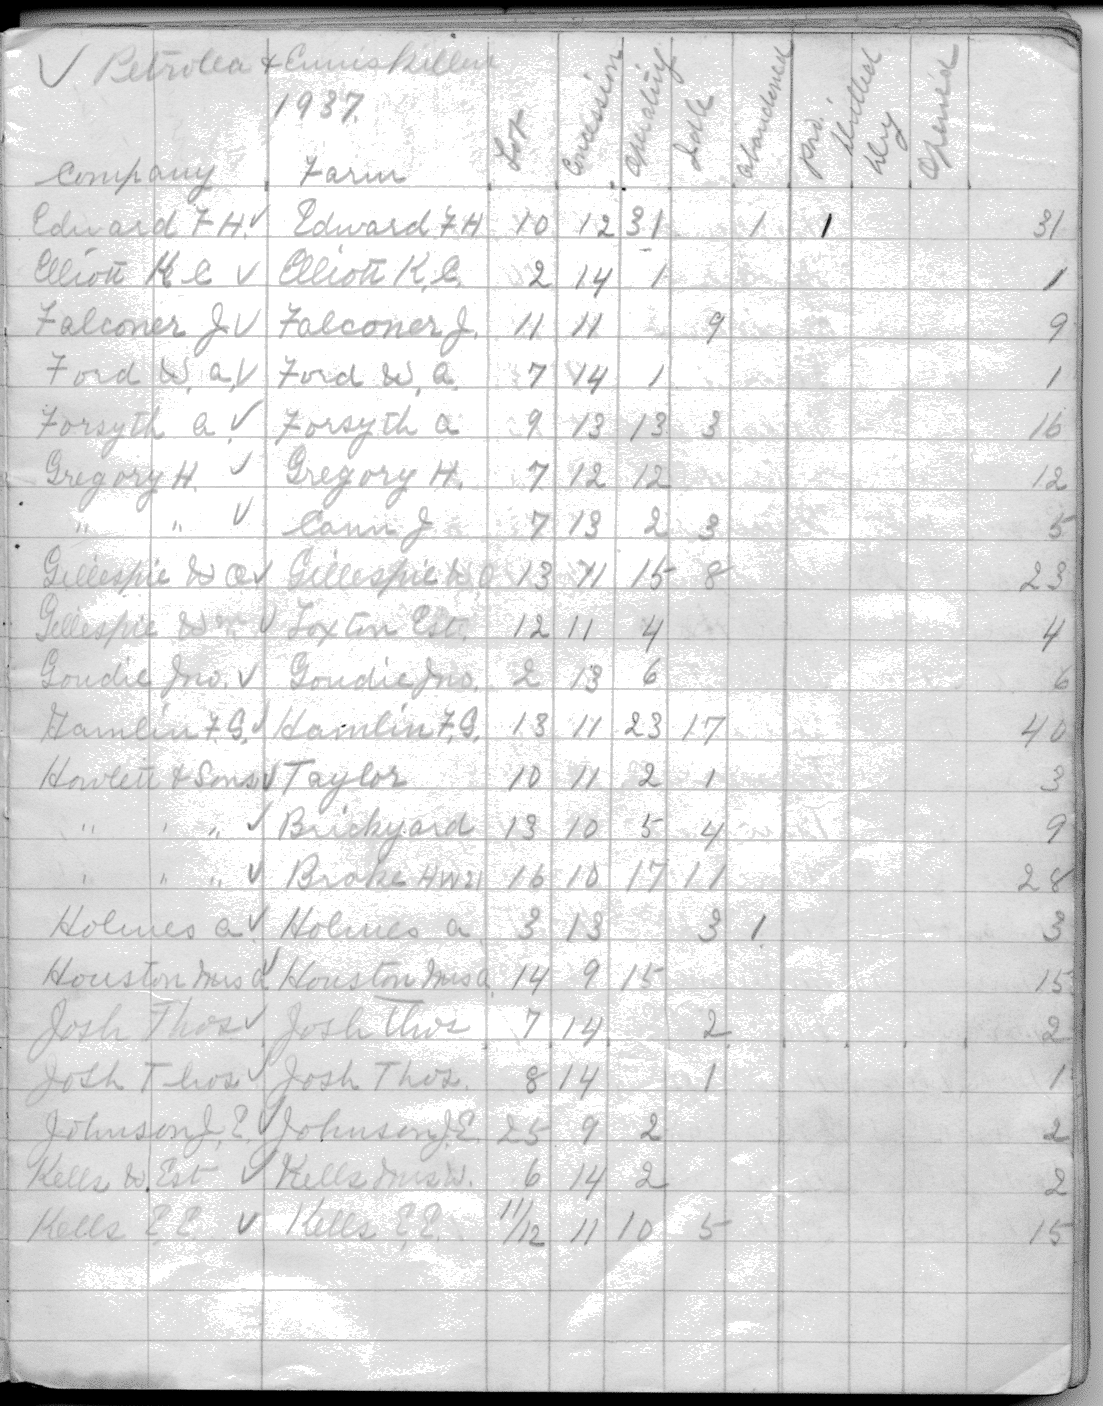 ✓ Petrolea & Enniskillen
1937.
Company Farm Lot Concession Operating Idle Abandoned Pro. Drilled Dry Opened
Edward F H. ✓ Edward F H 10 12 31 1 1 31
Elliott K C ✓ Elliott K. C. 2 14 1 1
Falconer J. ✓ Falconer J. 11 11 9 9
Ford W. A. ✓ Ford W. A. 7 14 1 1
Forsyth A. ✓ Forsyth A 9 13 13 3 16
Gregory H. ✓ Gregory H. 7 12 12 12
" " ✓ Cann J 7 13 2 3 5
Gillespie W ✓ Gillespie W 13 11 15 8 23
Gillespie Wm. ✓ Foxton Est. 12 11 4 4
Goudie Jno. ✓ Goudie Jno. 2 13 6 6
Hamlin F. G. ✓ Hamlin F. G. 13 11 23 17 40
Howlett & Sons ✓ Taylor 10 11 2 1 3
" " " ✓ Brickyard 13 10 5 4 9
" " " ✓ Brake 16 10 17 11 28
Holmes A. ✓ Holmes A 3 13 3 1 3
Houston Mrs A ✓ Houston Mrs A 14 9 15 15
Josh Thos ✓ Josh Thos 7 14 2 2
Josh Thos ✓ Josh Thos. 8 14 1 1
Johnson J. E. ✓ Johnson J. E. 25 9 2 2
Kells W. Est ✓ Kells Mrs W. 6 14 2 2
Kells E. E. ✓ Kells E. E. 11/12 11 10 5 15